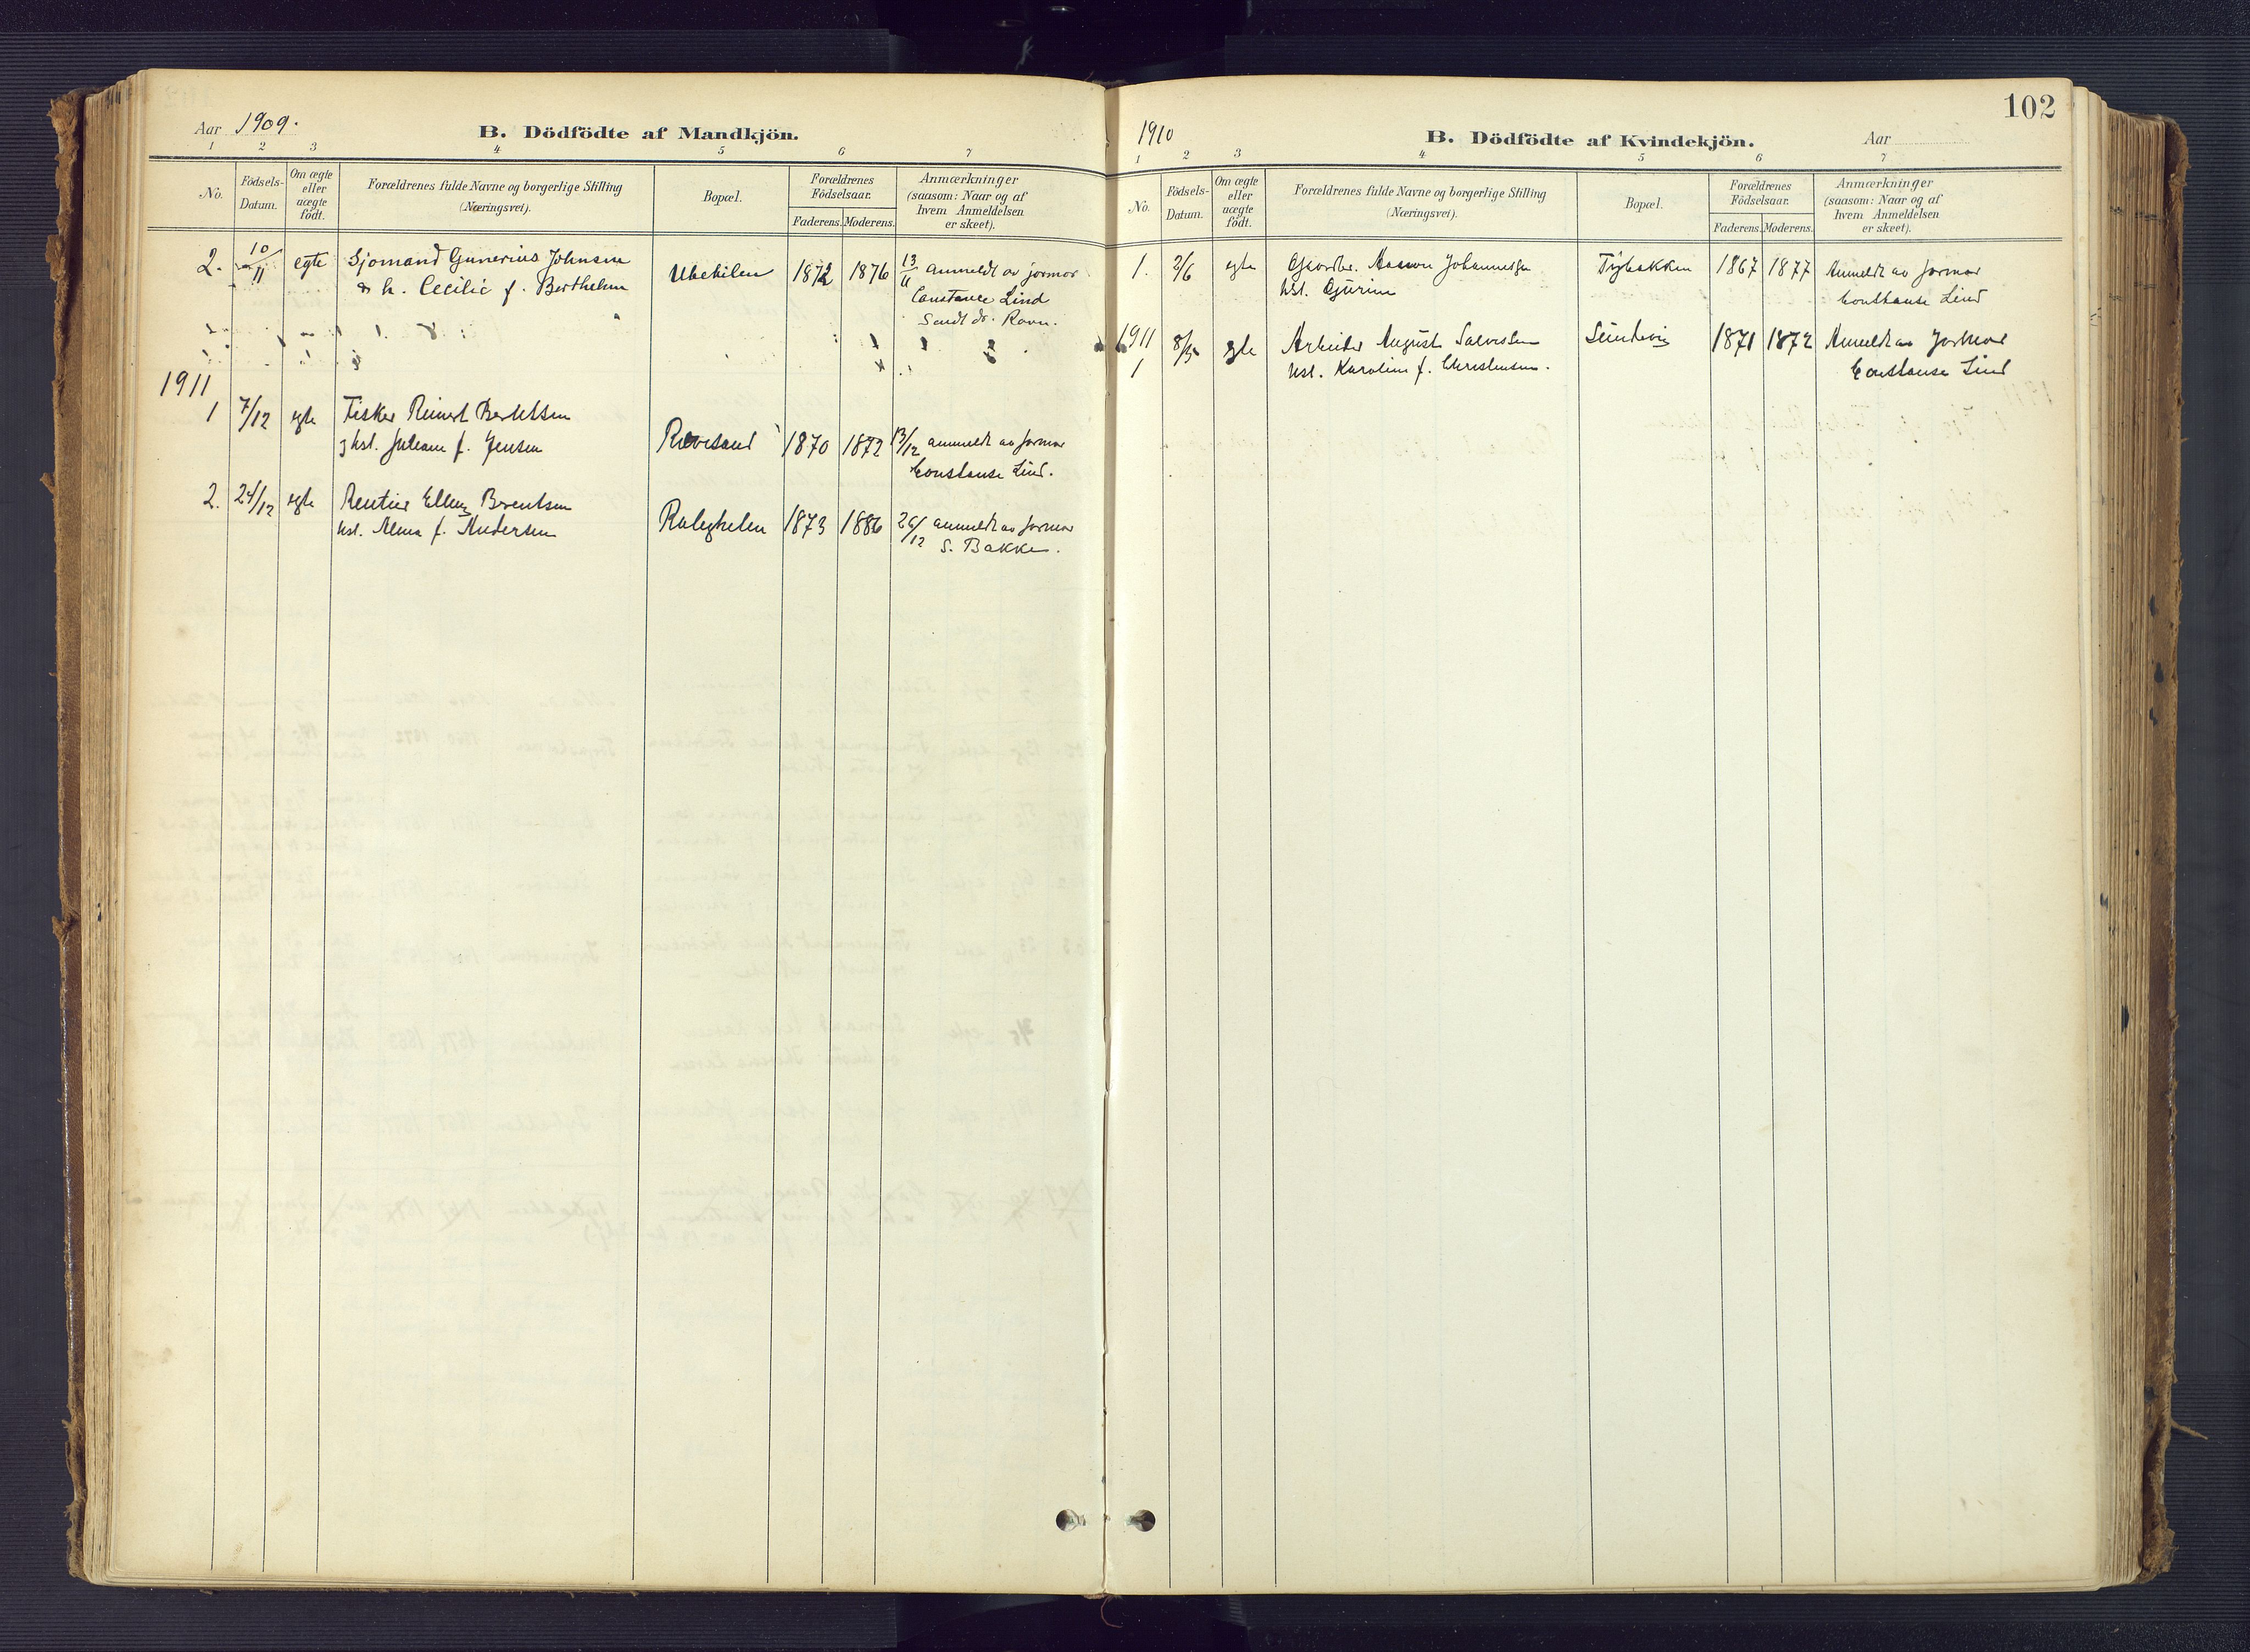 Aar 1909.
B. Dödfödte af Mandkjön.
1 2 3 4 5 6 7
No. Födsels-Datum. Om ægte eller uægte födt. Forældrenes fulde Navne og borgerlige Stilling (Næringsvei). Bopæl. Forældrenes Födselsaar. Faderens. Moderens. Anmærkninger (saasom: Naar og af hvem Anmeldelsen er skeet).
2. 10/11 egte Sjomand Gunerius Johnsen Ubekilen 1872 1876 13/11 anmeldt av jormor
& h. Cecilie f. Berthelsen Constance Lind
Sendt do. Ravn.
1911
1 7/12 egte Fisker Reinert Bertelsen
g hst. Juliane f. Jensen Revesand 1870 1872 13/12 anmeldt av jormor
Constanse Lind.
2. 24/12 egte Rentier Ellen Berentsen
hst. Alma f. Andersen Ralegkelen 1873 1886 26/12 anmeldt av jormor
S. Bakke.
102
1910
B. Dödfödte af Kvindekjön.
Aar
1 2 3 4 5 6 7
No. Födsels-Datum. Om ægte eller uægte födt. Forældrenes fulde Navne og borgerlige Stilling (Næringsvei). Bopæl. Forældrenes Födselsaar. Faderens. Moderens. Anmærkninger (saasom: Naar og af hvem Anmeldelsen er skeet).
1. 2/6 egte Gaardbr. Aanon Johannesen Tybakken 1867 1877 Anmeldt av jormor
hst. Gurine Constanse Lind
1911 8/5 egte Arbeider August Salvesen Sundvig 1871 1872 Anmeldt av Jormor
1 hst. Karoline f. Christensen. Constanse Lind